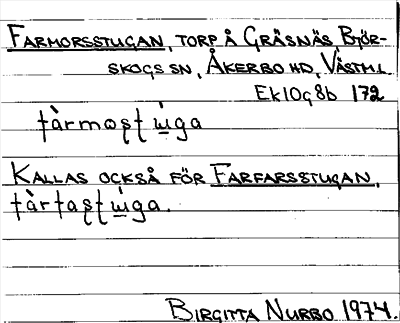 FARMORSSTUGAN, TORP Å GRÄSNÄS, BJÖR-
SKOGS SN, ÅKERBO HD, VÄSTML.
Ek10g8b 172
KALLAS OCKSÅ FÖR FARFARSSTUGAN,
BIRGITTA NURBO 1974.